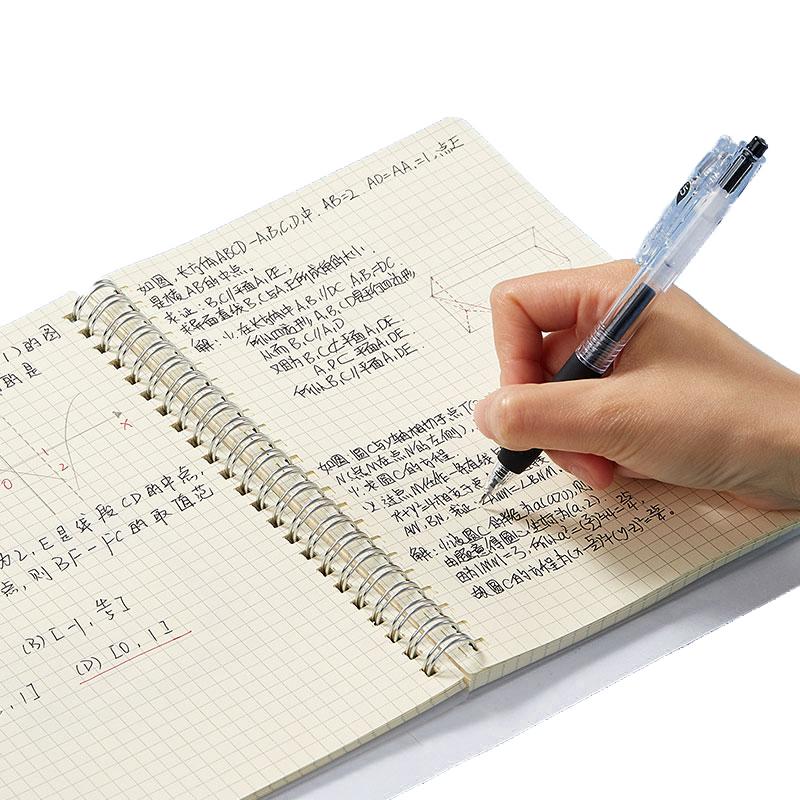 1)的图
的是
0
1
2
x
为2,E是线段CD的中点,
点,则BF-FC的取值范
(B)[-1,4/5]
(D)[0,1]
,1]
如图,长方体ABCD-A₁B₁C₁D₁中,AB=2,AD=AA₁=1,点E
是棱AB的中点.
求证:B₁C∥平面A₁DE,
求异面直线B₁C与A₁E所成角的大小.
解:(1).在长方体中A₁B₁∥DC A₁B₁=DC
所以四边形A₁B₁CD是平行四边形
从而B₁C∥A₁D
又因为B₁C⊄平面A₁DE.
A₁D⊂平面A₁DE.
所以B₁C∥平面A₁DE.
如图,圆C与y轴相切于点T(0
N(点M在点N的左侧),
(1).求圆C的方程.
(2)过点M任作一条直线
x²+y²=4相交于点
AN,BN,求证:∠ANM=∠BNM
解:(1)设圆C的半径为a(a>0),则
由题意得圆心坐标为(a,2).
因为|MN|=3,所以a²=(3/2)²+4=25/4,
故圆C的方程为(x-5/2)²+(y-2)²=25/4.